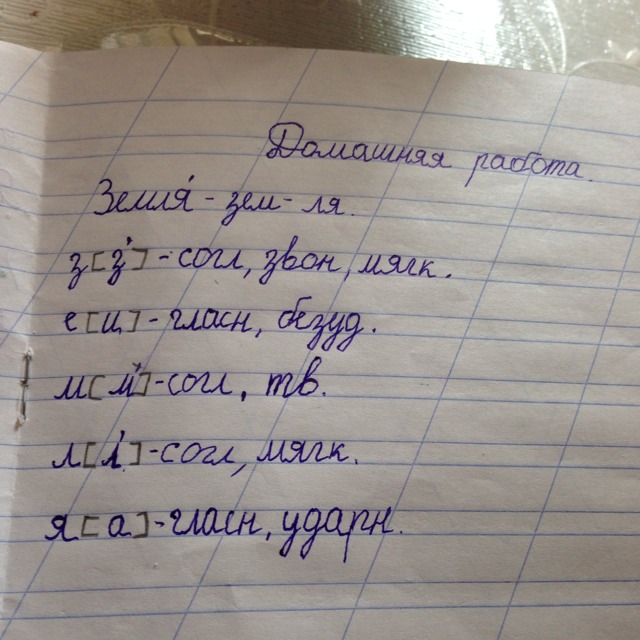 Домашняя работа.
Земля́ - зем- ля.
з [з'] - согл, звон, мягк.
е [и] - гласн, безуд.
м [м'] - согл, тв.
л [л'] - согл, мягк.
я [а] - гласн, ударн.